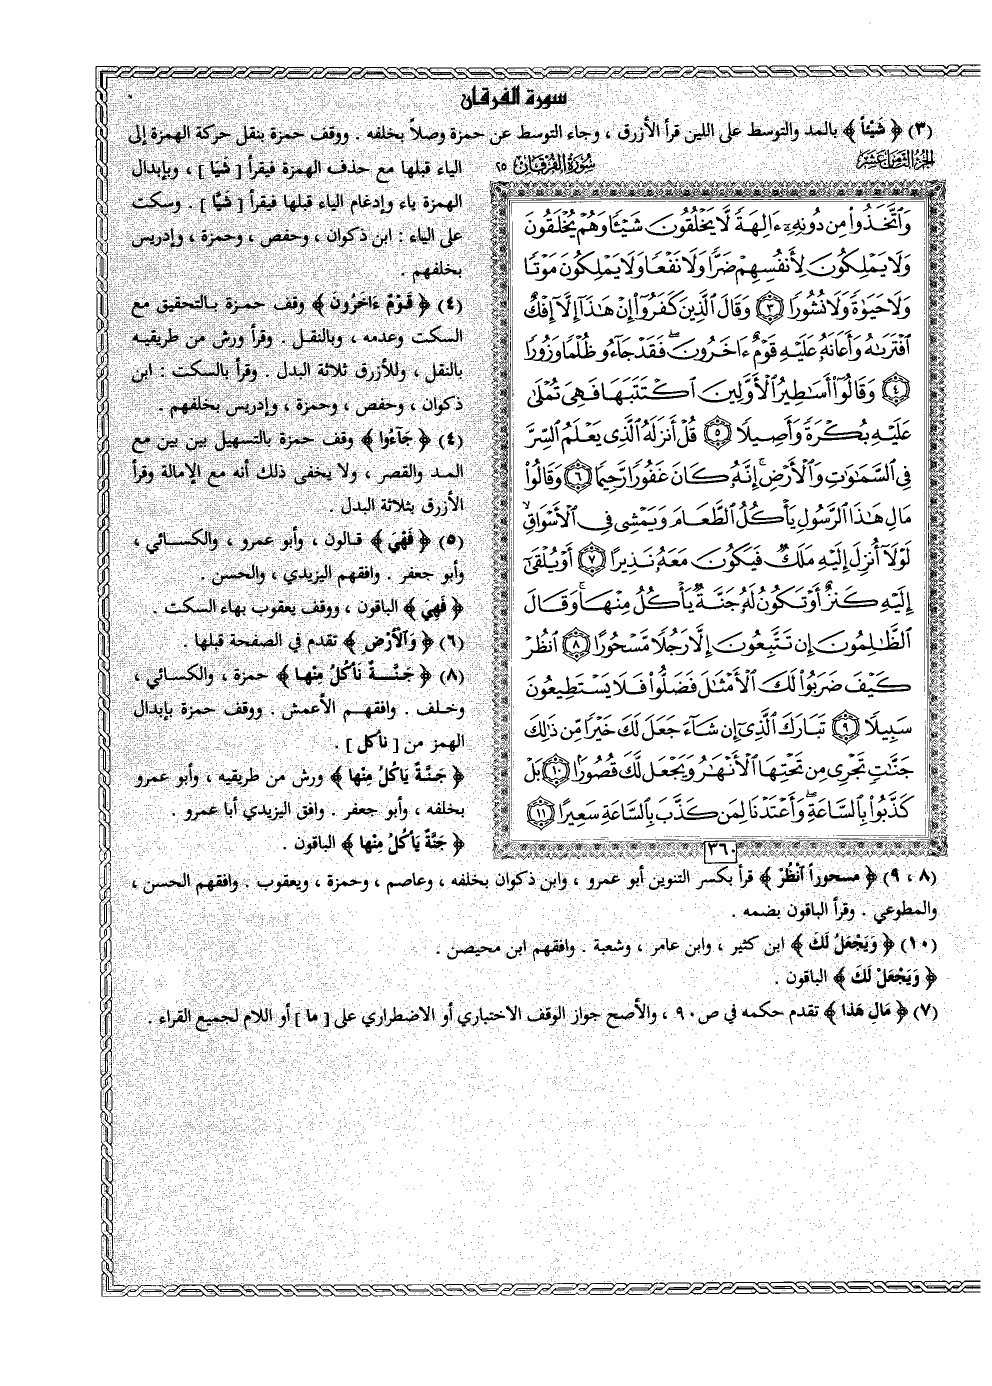 سورة الفرقان
(٣) ﴿ شَيْئاً ﴾ بالمد والتوسط على اللين قرأ الأزرق ، وجاء التوسط عن حمزة وصلاً بخلفه . ووقف حمزة بنقل حركة الهمزة إلى
الياء قبلها مع حذف الهمزة فيقرأ [ شَيَا ] ، وبإبدال
الهمزة ياء وإدغام الياء قبلها فيقرأ [ شَيًّا ] . وسكت
على الياء : ابن ذكوان ، وحفص ، وحمزة ، وإدريس
بخلفهم .
(٤) ﴿ قَوْمٌ ءَاخَرُونَ ﴾ وقف حمزة بالتحقيق مع
السكت وعدمه ، وبالنقل . وقرأ ورش من طريقيه
بالنقل ، وللأزرق ثلاثة البدل . وقرأ بالسكت : ابن
ذكوان ، وحفص ، وحمزة ، وإدريس بخلفهم .
(٤) ﴿ جَآءُوا ﴾ وقف حمزة بالتسهيل بين بين مع
المد والقصر ، ولا يخفى ذلك أنه مع الإمالة وقرأ
الأزرق بثلاثة البدل .
(٥) ﴿ فَهْيَ ﴾ قالون ، وأبو عمرو ، والكسائي ،
وأبو جعفر . وافقهم اليزيدي ، والحسن .
﴿ فَهِيَ ﴾ الباقون ، ووقف يعقوب بهاء السكت .
(٦) ﴿ وَالْأَرْضِ ﴾ تقدم في الصفحة قبلها .
(٨) ﴿ جَنَّةٌ نَأْكُلُ مِنْهَا ﴾ حمزة ، والكسائي ،
وخلف . وافقهم الأعمش . ووقف حمزة بإبدال
الهمز من [ نأكل ] .
﴿ جَنَّةٌ يَاكُلُ مِنْها ﴾ ورش من طريقيه ، وأبو عمرو
بخلفه ، وأبو جعفر . وافق اليزيدي أبا عمرو .
﴿ جَنَّةٌ يَأْكُلُ مِنْها ﴾ الباقون .
الجزء الثامن عشر
سورة الفرقان ٢٥
وَٱتَّخَذُوا۟ مِن دُونِهِۦٓ ءَالِهَةً لَّا يَخْلُقُونَ شَيْـًٔا وَهُمْ يُخْلَقُونَ
وَلَا يَمْلِكُونَ لِأَنفُسِهِمْ ضَرًّا وَلَا نَفْعًا وَلَا يَمْلِكُونَ مَوْتًا
وَلَا حَيَوٰةً وَلَا نُشُورًا ٣ وَقَالَ ٱلَّذِينَ كَفَرُوٓا۟ إِنْ هَٰذَآ إِلَّآ إِفْكٌ
ٱفْتَرَىٰهُ وَأَعَانَهُۥ عَلَيْهِ قَوْمٌ ءَاخَرُونَ ۖ فَقَدْ جَآءُو ظُلْمًا وَزُورًا
٤ وَقَالُوٓا۟ أَسَٰطِيرُ ٱلْأَوَّلِينَ ٱكْتَتَبَهَا فَهِىَ تُمْلَىٰ
عَلَيْهِ بُكْرَةً وَأَصِيلًا ٥ قُلْ أَنزَلَهُ ٱلَّذِى يَعْلَمُ ٱلسِّرَّ
فِى ٱلسَّمَٰوَٰتِ وَٱلْأَرْضِ ۚ إِنَّهُۥ كَانَ غَفُورًا رَّحِيمًا ٦ وَقَالُوا۟
مَالِ هَٰذَا ٱلرَّسُولِ يَأْكُلُ ٱلطَّعَامَ وَيَمْشِى فِى ٱلْأَسْوَاقِ ۙ
لَوْلَآ أُنزِلَ إِلَيْهِ مَلَكٌ فَيَكُونَ مَعَهُۥ نَذِيرًا ٧ أَوْ يُلْقَىٰٓ
إِلَيْهِ كَنزٌ أَوْ تَكُونُ لَهُۥ جَنَّةٌ يَأْكُلُ مِنْهَا ۚ وَقَالَ
ٱلظَّٰلِمُونَ إِن تَتَّبِعُونَ إِلَّا رَجُلًا مَّسْحُورًا ٨ ٱنظُرْ
كَيْفَ ضَرَبُوا۟ لَكَ ٱلْأَمْثَٰلَ فَضَلُّوا۟ فَلَا يَسْتَطِيعُونَ
سَبِيلًا ٩ تَبَارَكَ ٱلَّذِىٓ إِن شَآءَ جَعَلَ لَكَ خَيْرًا مِّن ذَٰلِكَ
جَنَّٰتٍ تَجْرِى مِن تَحْتِهَا ٱلْأَنْهَٰرُ وَيَجْعَل لَّكَ قُصُورًۢا ١٠ بَلْ
كَذَّبُوا۟ بِٱلسَّاعَةِ ۖ وَأَعْتَدْنَا لِمَن كَذَّبَ بِٱلسَّاعَةِ سَعِيرًا ١١
٣٦٠
(٨ ، ٩) ﴿ مسحوراً ٱنْظُرْ ﴾ قرأ بكسر التنوين أبو عمرو ، وابن ذكوان بخلفه ، وعاصم ، وحمزة ، ويعقوب . وافقهم الحسن ،
والمطوعي . وقرأ الباقون بضمه .
(١٠) ﴿ وَيَجْعَلُ لَكَ ﴾ ابن كثير ، وابن عامر ، وشعبة . وافقهم ابن محيصن .
﴿ وَيَجْعَلْ لَكَ ﴾ الباقون .
(٧) ﴿ مَالِ هَذا ﴾ تقدم حكمه في ص ٩٠ ، والأصح جواز الوقف الاختباري أو الاضطراري على [ ما ] أو اللام لجميع القراء .